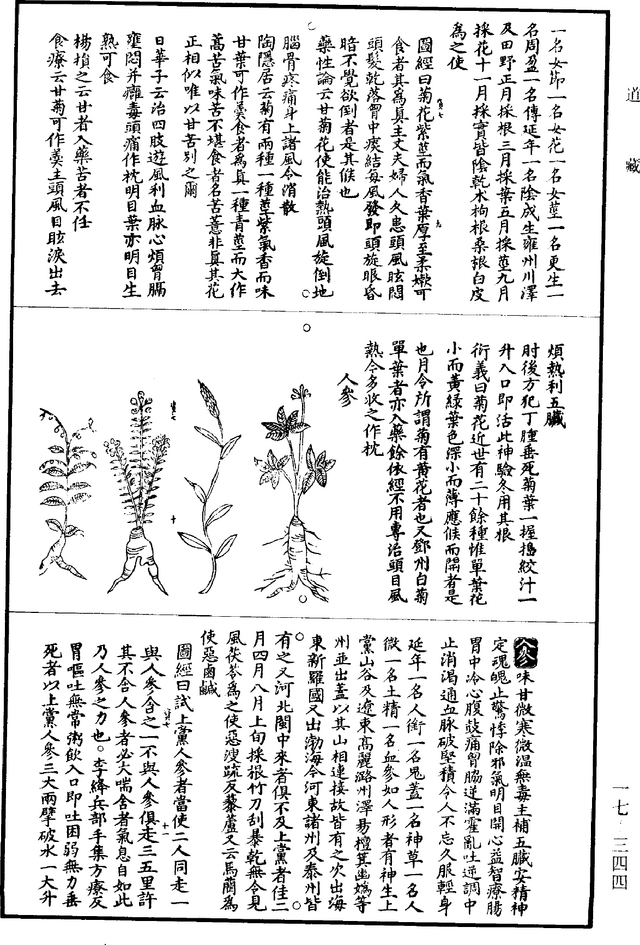 道藏
一名女節一名女花一名女莖一名更生一
名周盈一名傳延年一名陰成生雍州川澤
及田野正月採根三月採葉五月採莖九月
採花十一月採實皆陰乾朮枸根桑根白皮
為之使
圖經曰菊花紫莖而氣香葉厚至柔嫰可
食者其為真主丈夫婦人久患頭風眩悶
頭髮乾落胷中痰結每風發即頭旋眼昏
暗不覺欲倒者是其候也
藥性論云甘菊花使能治熱頭風旋倒地
腦骨疼痛身上諸風令消散
陶隱居云菊有兩種一種莖紫氣香而味
甘葉可作羹食者為真一種青莖而大作
蒿苦氣味苦不堪食者名苦薏非真其花
正相似唯以甘苦別之爾
日華子云治四肢遊風利血脉心煩胷膈
壅悶并癰毒頭痛作枕明目葉亦明目生
熟可食
楊損之云甘者入藥苦者不任
食療云甘菊可作羹主頭風目眩淚出去
煩熱利五臟
肘後方犯丁腫垂死菊葉一握搗絞汁一
升入口即活此神驗冬用其根
衍義曰菊花近世有二十餘種惟單葉花
小而黃綠葉色深小而薄應候而開者是
也月令所謂菊有黃花者也又鄧州白菊
單葉者亦入藥餘依經不用專治頭目風
熱今多收之作枕
人參
人參味甘微寒微温無毒主補五臟安精神
定魂魄止驚悸除邪氣明目開心益智療腸
胃中冷心腹鼓痛胷脇逆滿霍亂吐逆調中
止消渴通血脉破堅積令人不忘久服輕身
延年一名人銜一名鬼蓋一名神草一名人
微一名土精一名血參如人形者有神生上
黨山谷及遼東高麗潞州澤易檀箕幽媯等
州並出蓋以其山相連接故皆有之次出海
東新羅國又出渤海今河東諸州及泰州皆
有之又河北閩中來者俱不及上黨者佳二
月四月八月上旬採根竹刀刮暴乾無令見
風茯苓為之使惡溲疏反藜蘆又云馬藺為
使惡鹵鹹
圖經曰試上黨人參者當使二人同走一
與人參含之一不與人參俱走三五里許
其不含人參者必大喘含者氣息自如此
乃人參之力也。李絳兵部手集方療反
胃嘔吐無常粥飲入口即吐困弱無力垂
死者以上黨人參三大兩擘破水一大升
一七·三四四